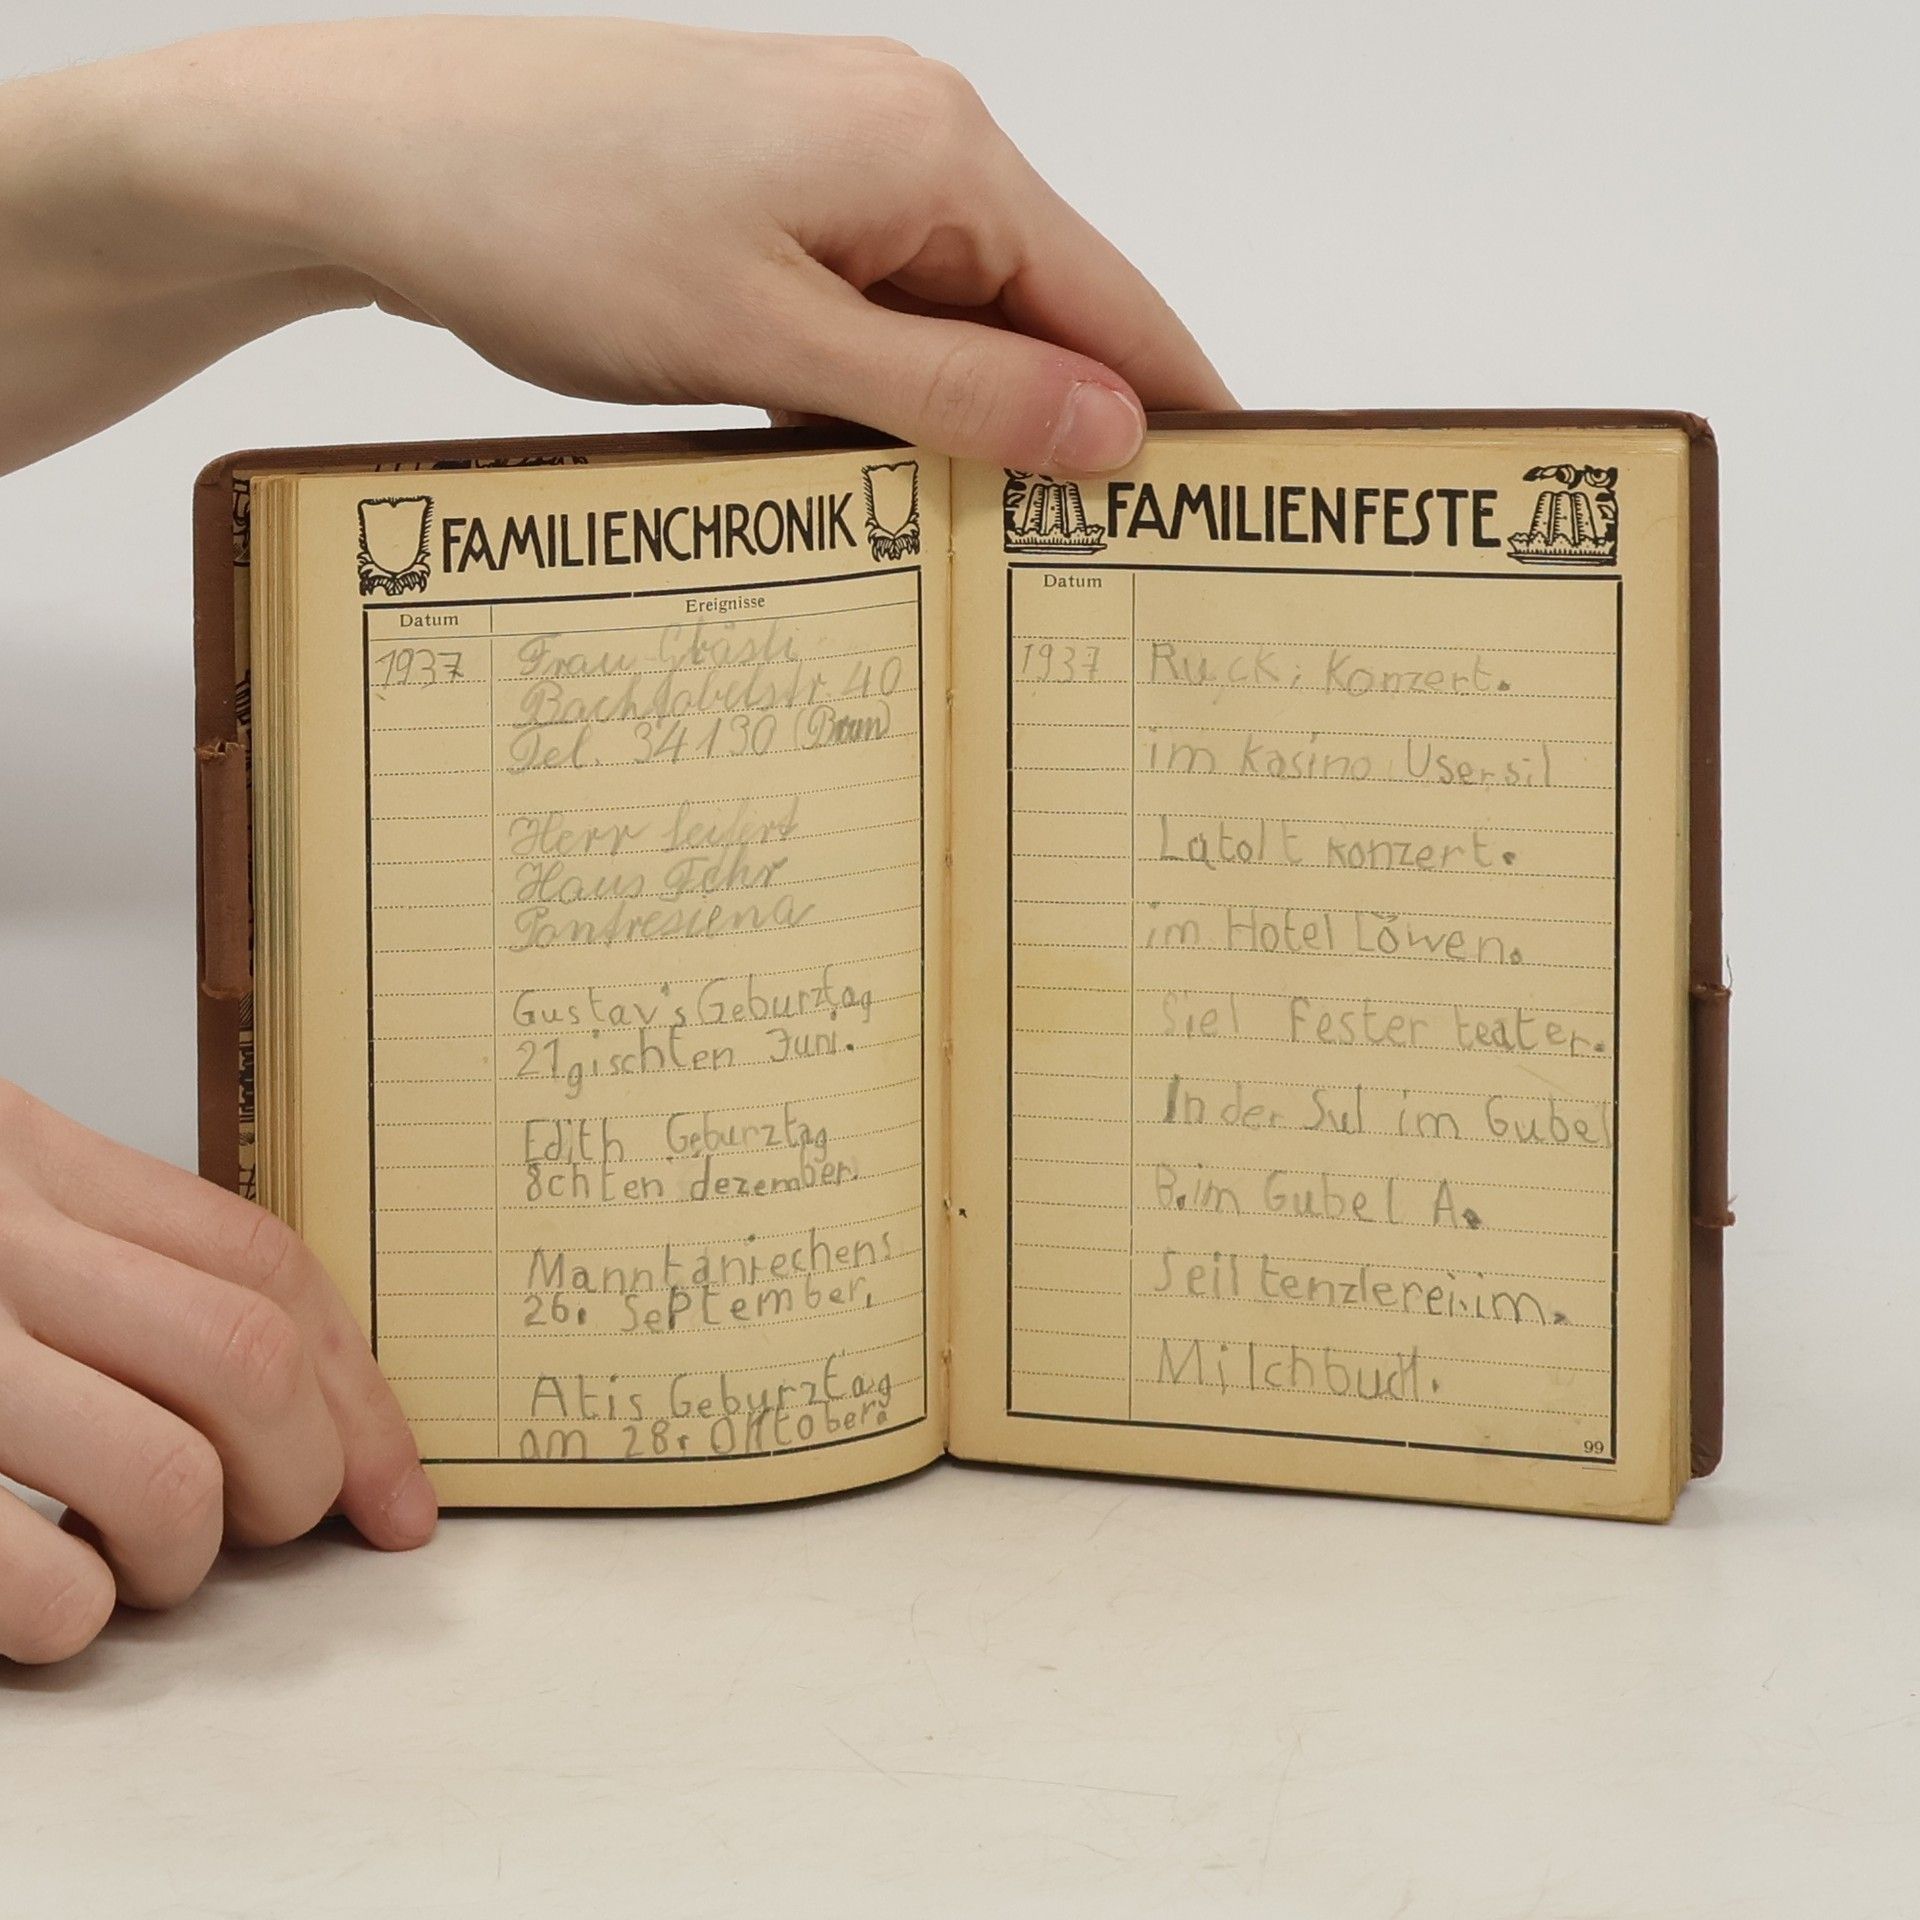 FAMILIENCHRONIK
Datum
Ereignisse
1937
Frau
Bachtobelstr. 40
Tel. 34130 (Brun)
Herr Seifert
Haus Fehr
Pontresiena
Gustav's Geburztag
21gischten Juni.
Edith Geburztag
8chten dezember.
26. September.
Atis Geburztag
am 28. Oktober.
FAMILIENFESTE
Datum
1937
Ruck; Konzert.
im Kasino Usersil
Latolt konzert.
im Hotel Löwen.
Siel Fester teater.
In der Sul im Gubel
B. im Gubel A.
Seil tenzlerei. im.
Milchbuck.
99